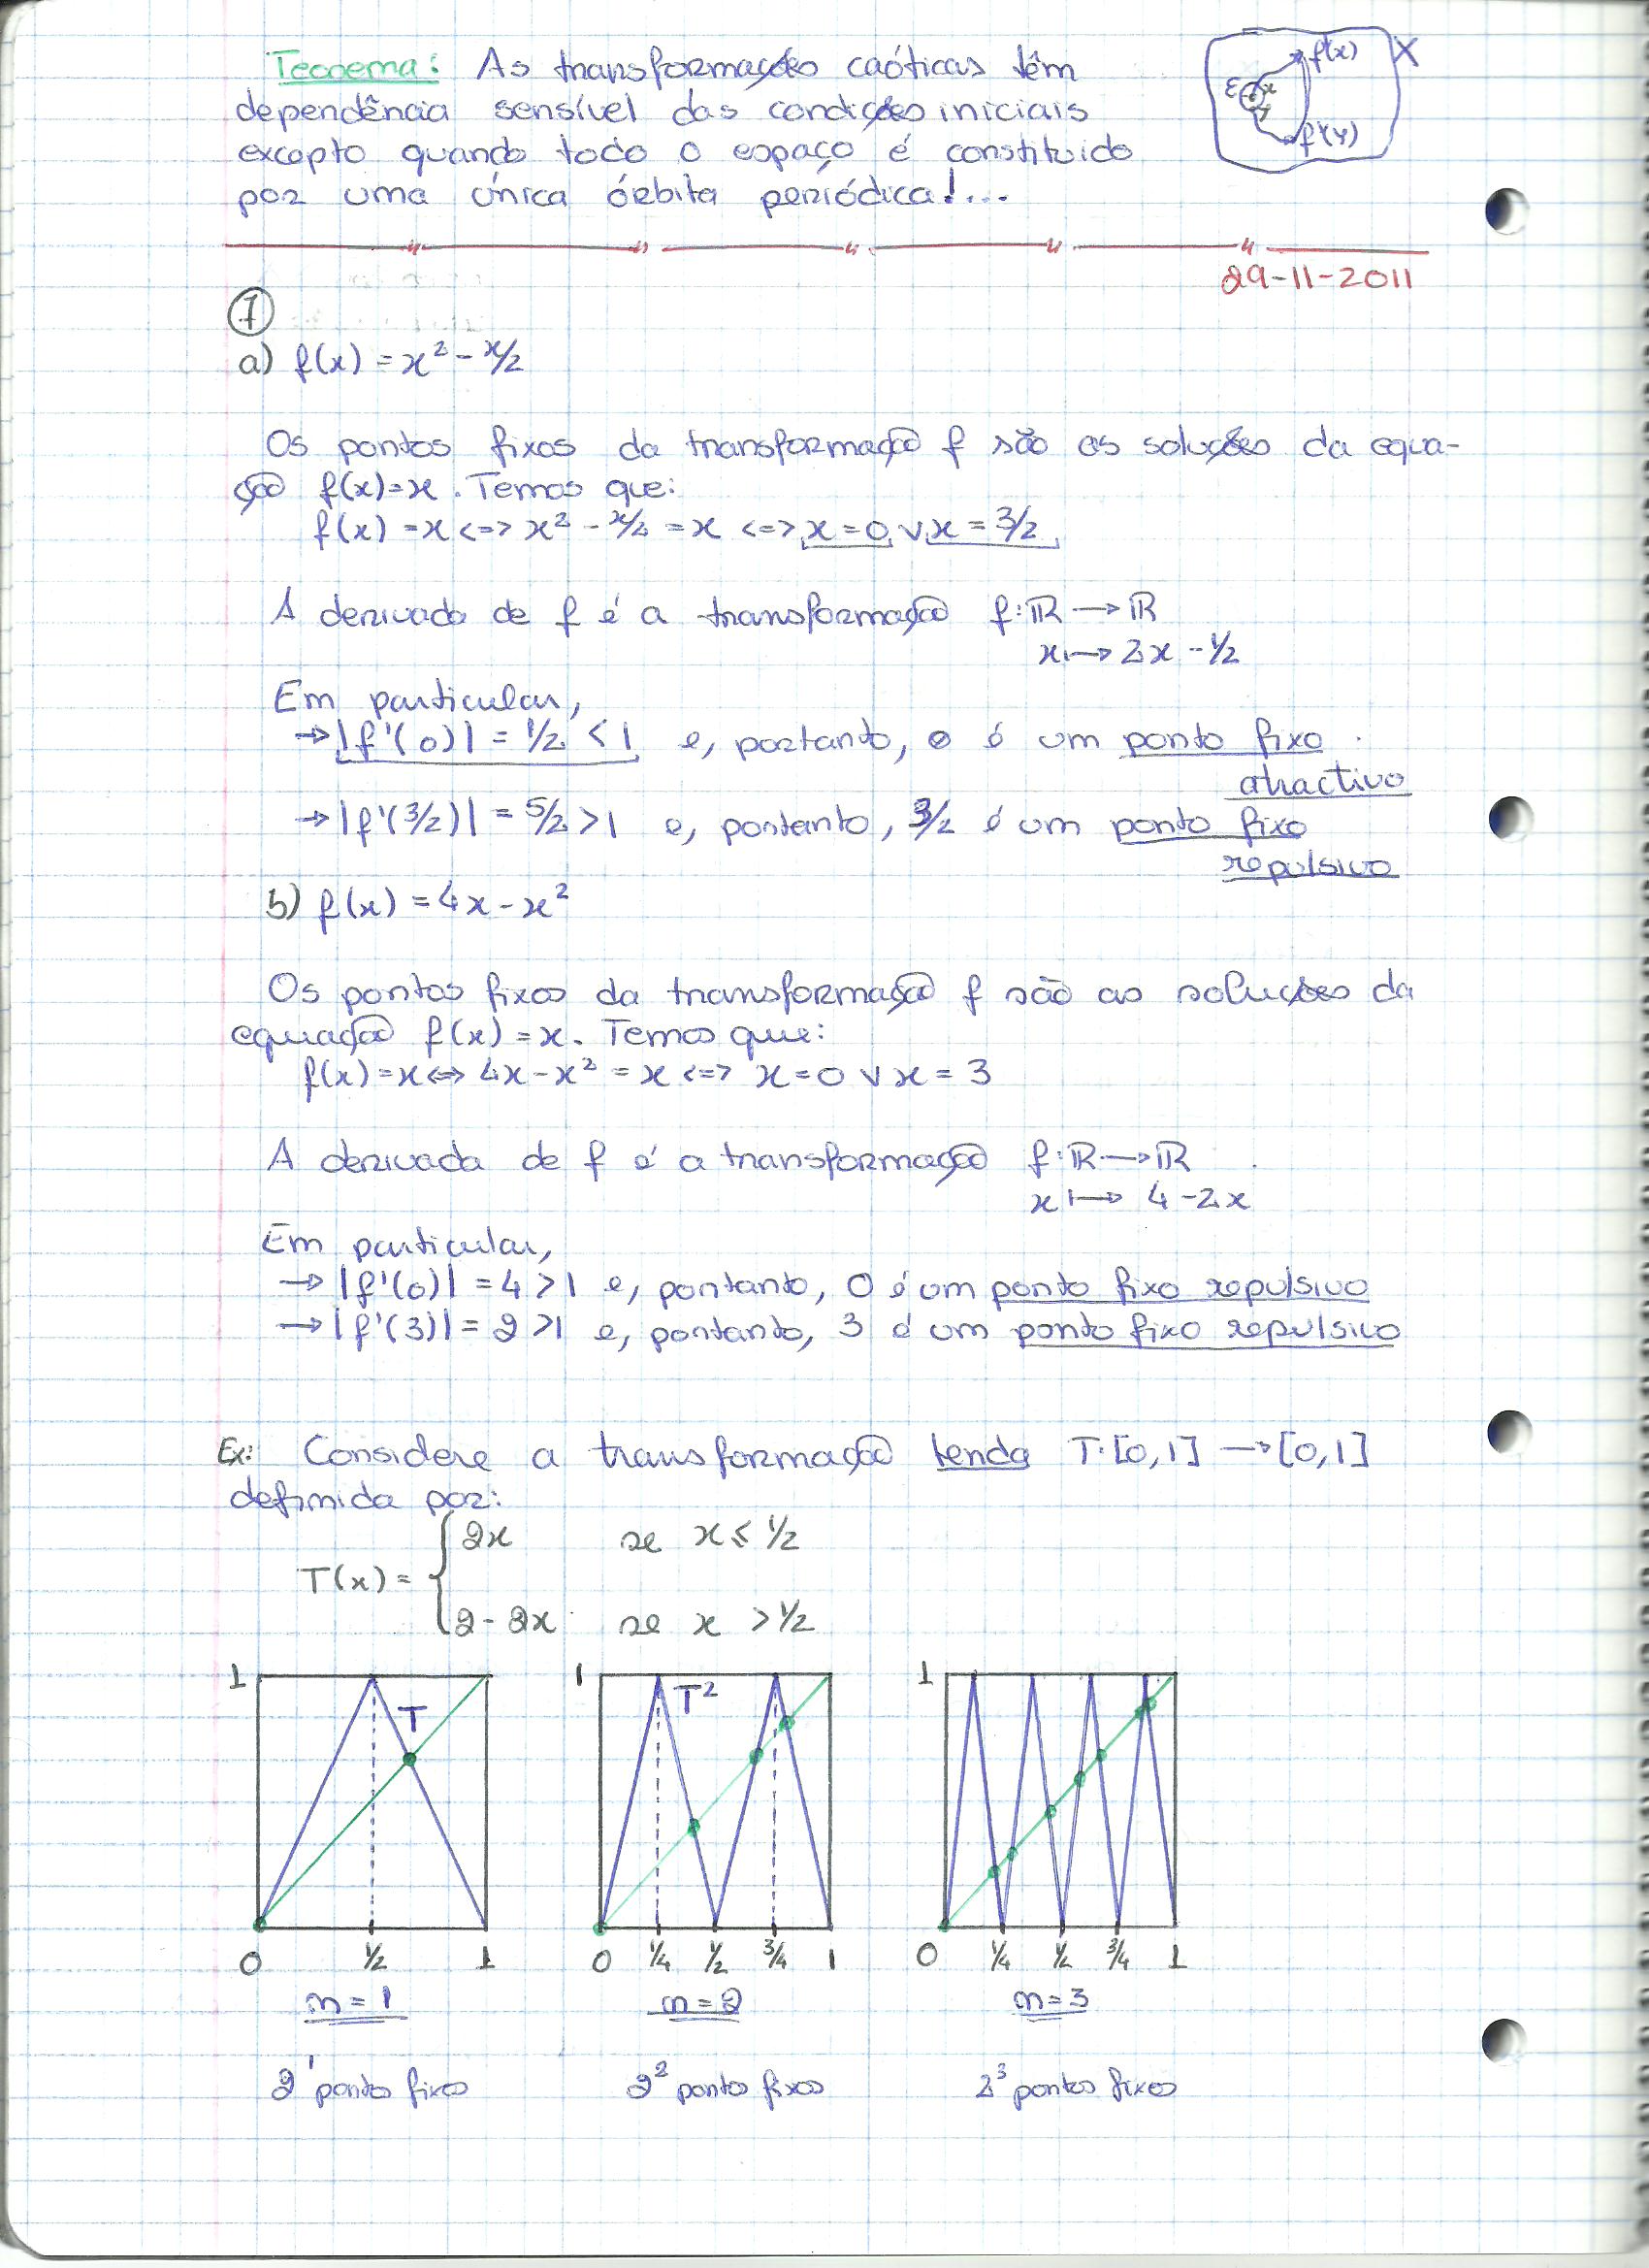 Teorema: As transformações caóticas têm
dependência sensível das condições iniciais
excepto quando todo o espaço é constituído
por uma única órbita periódica!...
f(x) X
ε x
y
f(y)
29-11-2011
①
a) f(x) = x² - x/2
Os pontos fixos da transformação f são as soluções da equa-
ção f(x)=x. Temos que:
f(x) = x <=> x² - x/2 = x <=> x = 0 ∨ x = 3/2
A derivada de f é a transformação f: ℝ → ℝ
x ↦ 2x - 1/2
Em particular,
→ |f'(0)| = 1/2 < 1 e, portanto, 0 é um ponto fixo
atractivo
→ |f'(3/2)| = 5/2 > 1 e, portanto, 3/2 é um ponto fixo
repulsivo
b) f(x) = 4x - x²
Os pontos fixos da transformação f são as soluções da
equação f(x) = x. Temos que:
f(x) = x <=> 4x - x² = x <=> x = 0 ∨ x = 3
A derivada de f é a transformação f: ℝ → ℝ
x ↦ 4 - 2x
Em particular,
→ |f'(0)| = 4 > 1 e, portanto, 0 é um ponto fixo repulsivo
→ |f'(3)| = 2 > 1 e, portanto, 3 é um ponto fixo repulsivo
Ex: Considere a transformação tenda T: [0,1] → [0,1]
definida por:
T(x) = { 2x se x ≤ 1/2
2 - 2x se x > 1/2
1 T 1 T² 1
0 1/2 1 0 1/4 1/2 3/4 1 0 1/4 1/2 3/4 1
n = 1 n = 2 n = 3
2¹ pontos fixos 2² pontos fixos 2³ pontos fixos